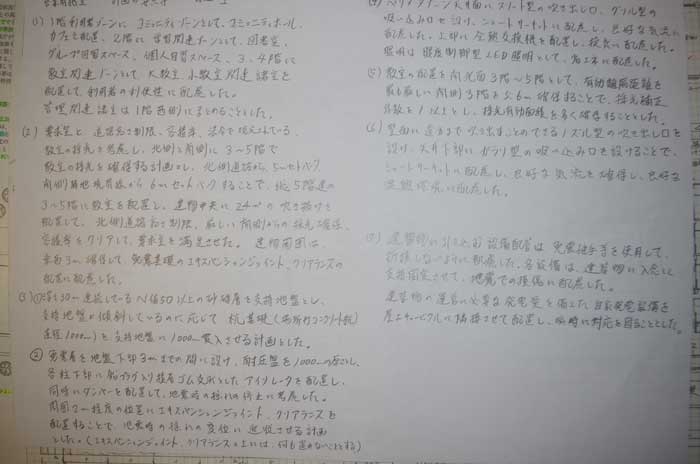 (1) 1階利用者ゾーンとして、コミュニティゾーンとして、コミュニティホール、
カフェを配置、2階に学習関連ゾーンとして、図書室、
グループ学習スペース、個人学習スペース、3、4階に
教室関連ゾーンとして、大教室、小教室関連諸室を
配置して利用者の利便性に配慮した。
管理関連諸室は1階西側にまとめることとした。
(2) 要求室と道路高さ制限、容積率、法令で
教室の採光を考慮し、北側と南側に3〜5階で
教室の採光を確保する計画とし、北側道路から5mセットバック
南側隣地境界線から6mセットバックすることで、地上5階建の
3〜5階に教室を配置し、建物中央に24㎡の吹き抜けを
配置して、北側道路高さ制限、厳しい南側からの採光を確保、
容積率をクリアして、要求室を満足させた。建物周囲は、
免震基礎のエキスパンションジョイント、クリアランスの
配置に配慮した。
(3) ① 連続しているN値50以上の砂礫層を支持地盤とし、
支持地盤が傾斜しているのに応じて杭基礎(場所打コンクリート杭)
直径1000㎜)を支持地盤に1000㎜貫入させる計画とした。
② 免震層を地盤下部3mまでの間に設け、耐圧盤を1000㎜の厚さとし、
各柱下部に鉛プラグ入り積層ゴム支承としたアイソレータを配置し、
同時にダンパーを配置して、地震時の揺れの停止に考慮した。
周囲2m程度の位置にエキスパンションジョイント、クリアランスを
配置することで、地震時の揺れの変位に追従させる計画
とした。(エキスパンションジョイント、クリアランスの上には、何も置かないこととする)
吸い込み口を設け、ショートサーキットに配慮し、良好な気流に
配慮した。上部に全熱交換機を配置し、換気に配慮した。
照明は照度制御型LED照明として、省エネに配慮した。
(5) 教室の配置を南北面3階〜5階として、有効離隔距離を
最も厳しい南側3階を 確保することで、採光補正
係数を1以上とし、採光有効面積を多く確保することとした。
(6) 壁面に遠方まで吹き出すことのできるノズル型の吹き出し口を
設け、天井下部にガラリ型の吸い込み口を設けることで、
ショートサーキットに配慮し、良好な気流を確保し、良好な
空調環境に配慮した。
設備配管は免震継手を使用して、
ように配慮した。各設備は、建築物に
支持固定させて、地震での損傷に配慮した。
建築物の運営に必要な発電量を備えた自家発電設備を
屋上キュービクルに隣接させて配置し、臨時に対応を図ることとした。